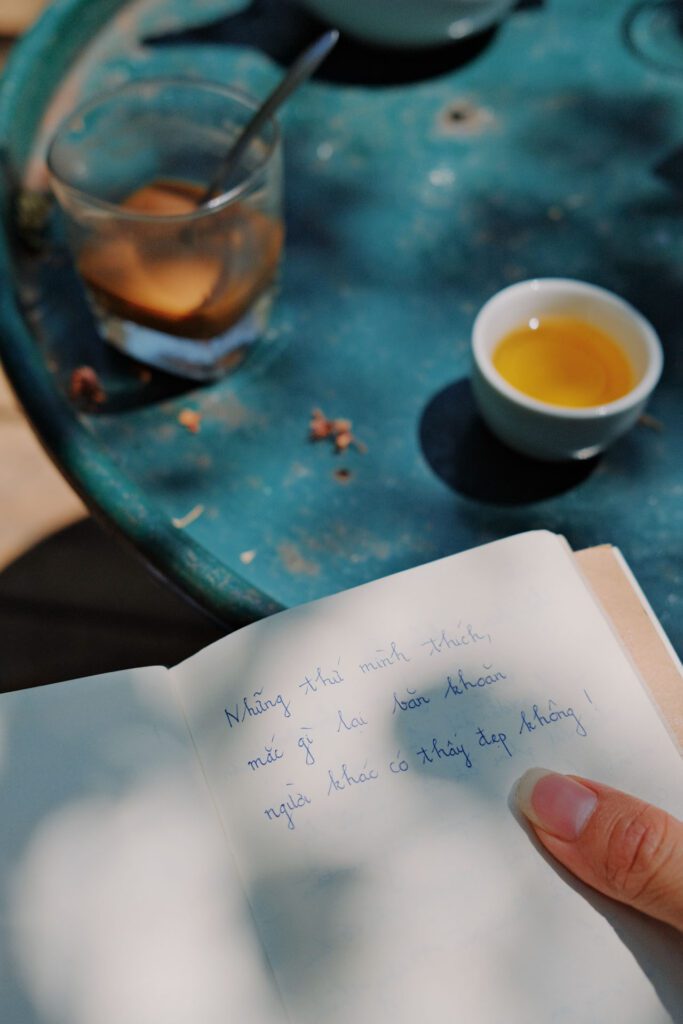 Những thứ mình thích,
mắc gì lại băn khoăn
người khác có thấy đẹp không!